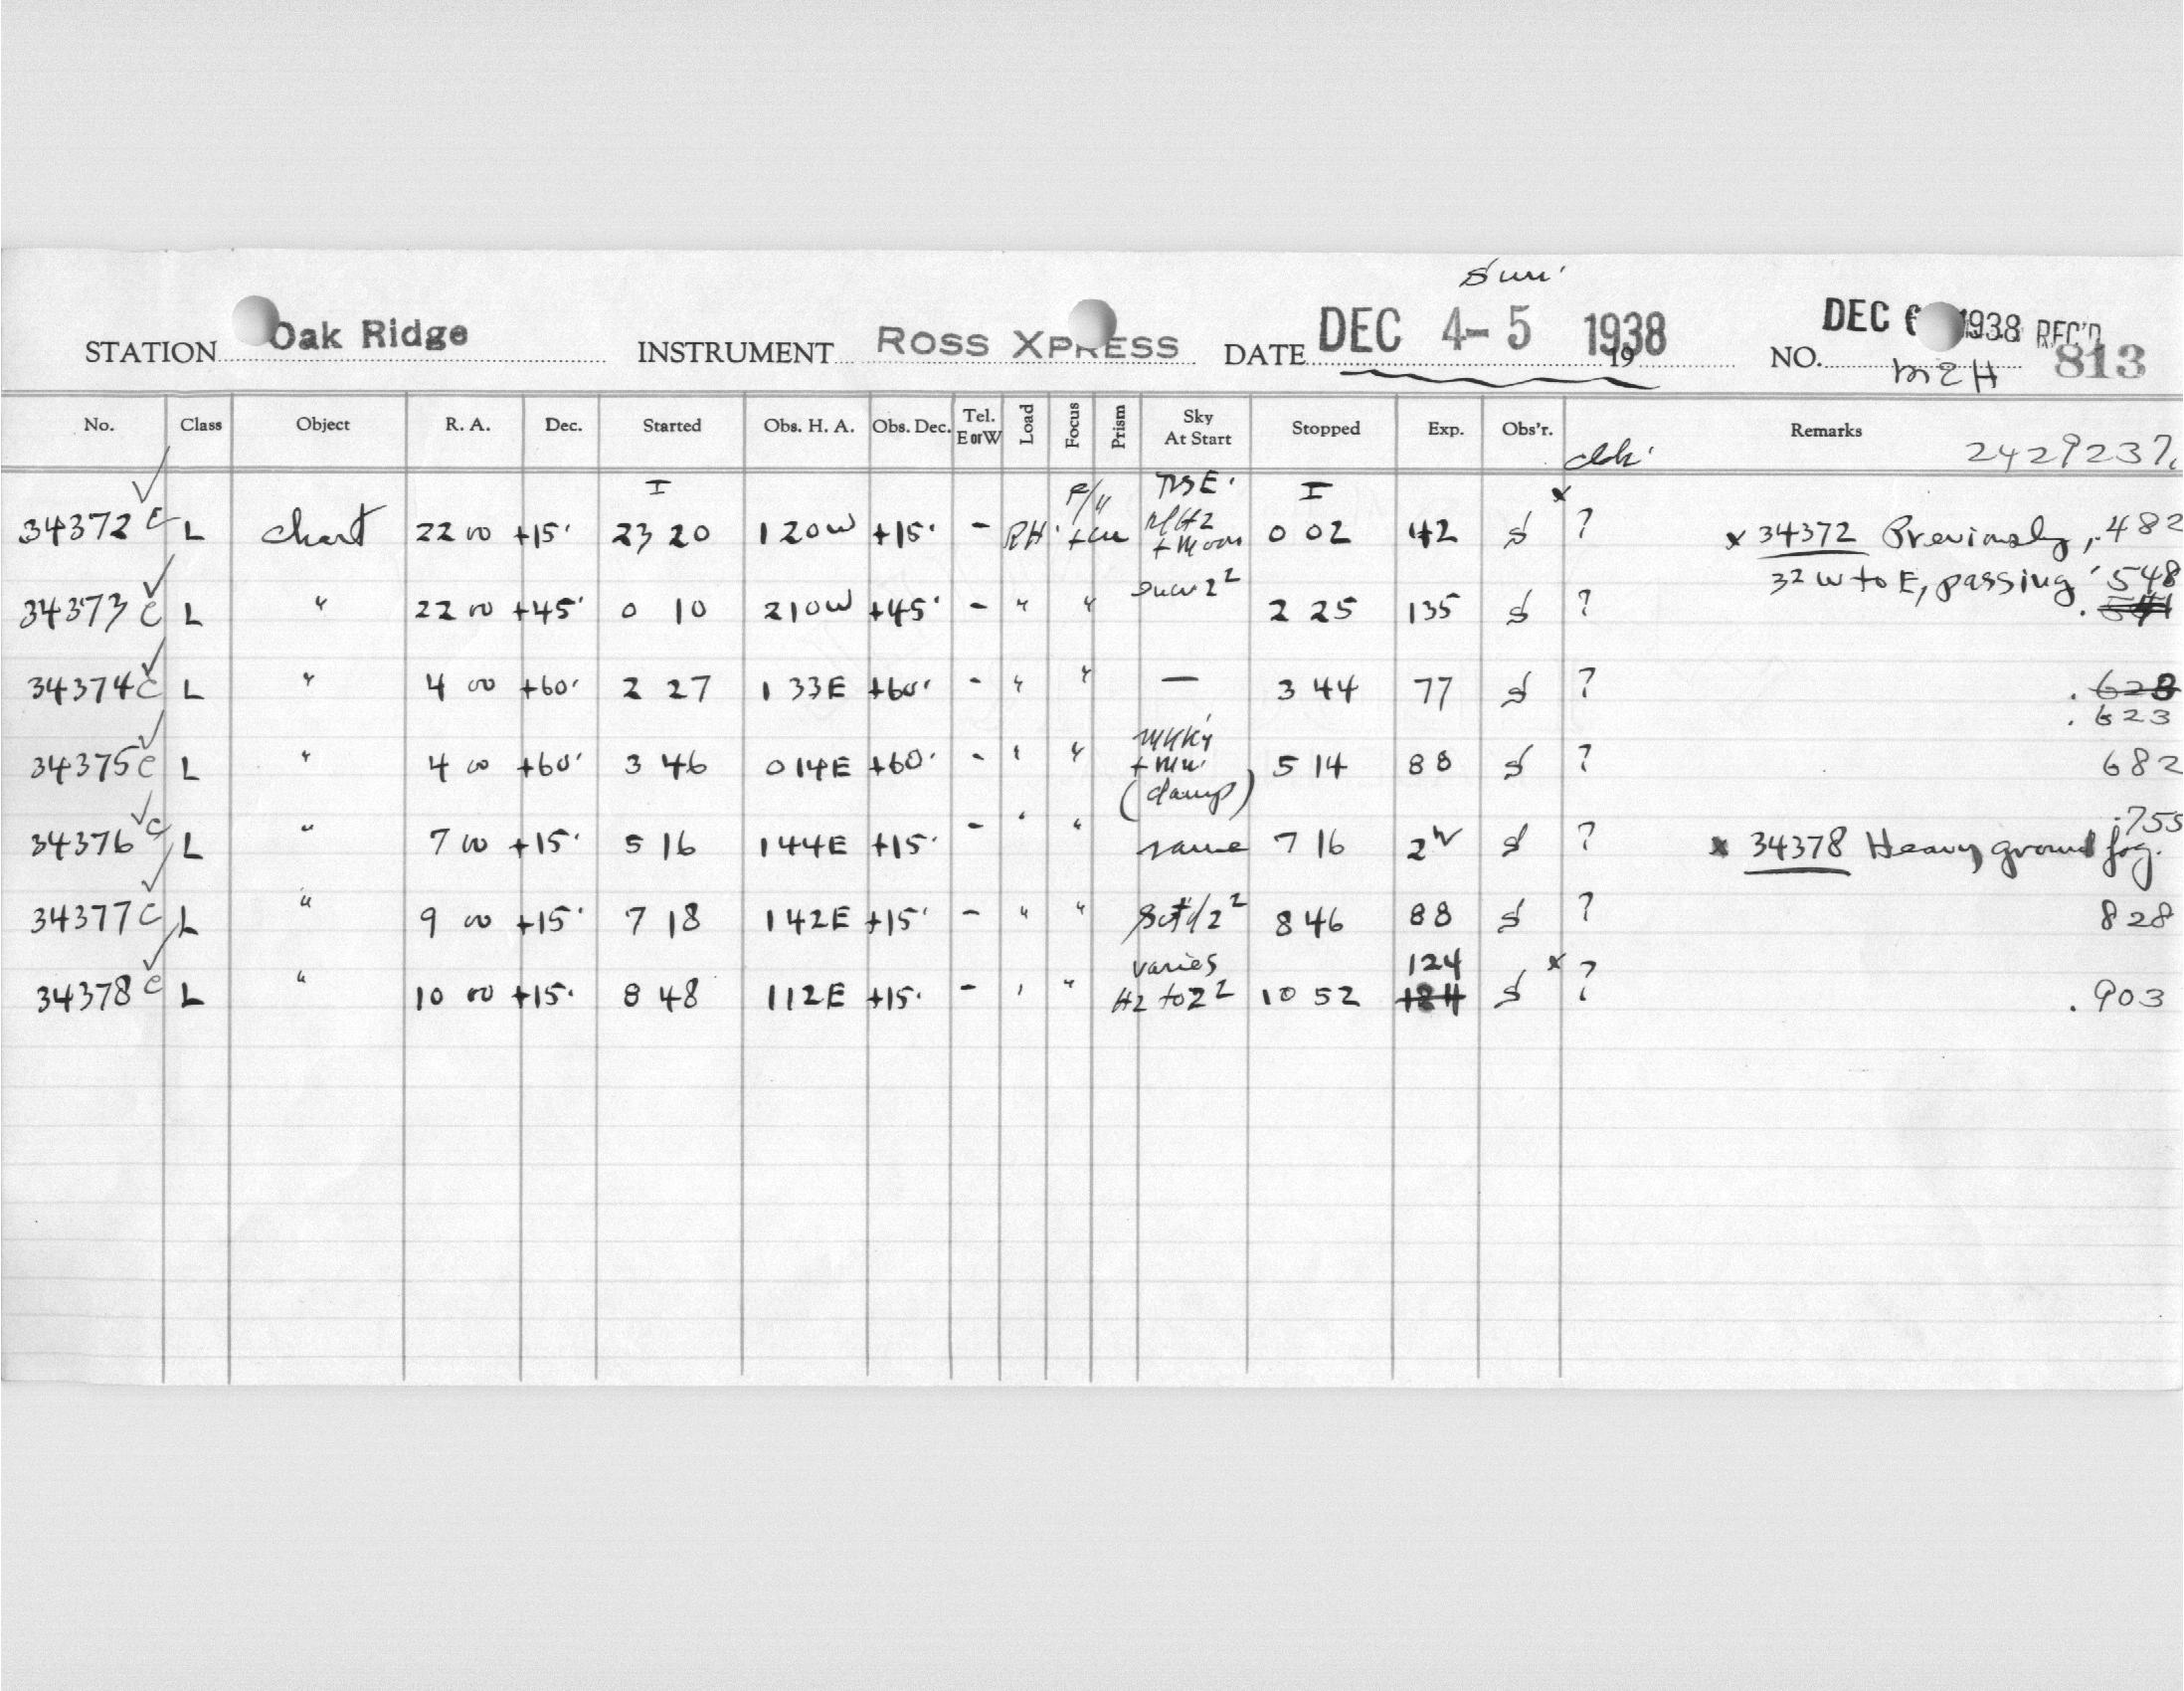 Sun.
STATION Oak Ridge INSTRUMENT ROSS XPRESS DATE DEC 4-5 1938 19 NO. DEC 1938 REC'D 813
No. Class Object R. A. Dec. Started Obs. H. A. Obs. Dec. Tel. E or W Load Focus Prism Sky At Start Stopped Exp. Obs'r. Remarks
2429237.
34372 c L chart 22 00 +15° I 23 20 1 20W +15° - RH + Moon I 0 02 42 S x ? x 34372 Previously, .482
34373 c L " 22 00 +45° 0 10 2 10W +45° - " " 2 25 135 S ? 32 W to E, passing .548
34374 c L " 4 00 +60° 2 27 1 33E +60° - " " — 3 44 77 S ? .628
.623
34375 c L " 4 00 +60° 3 46 0 14E +60° - " " (damp) 5 14 88 S ? 682
34376 c L " 7 00 +15° 5 16 1 44E +15° - " " same 7 16 2h S ? .755
x 34378 Heavy ground fog.
34377 c L " 9 00 +15° 7 18 1 42E +15° - " " 8 46 88 S ? 828
34378 c L " 10 00 +15° 8 48 1 12E +15° - " " varies Hz to 2² 10 52 124 S x ? .903